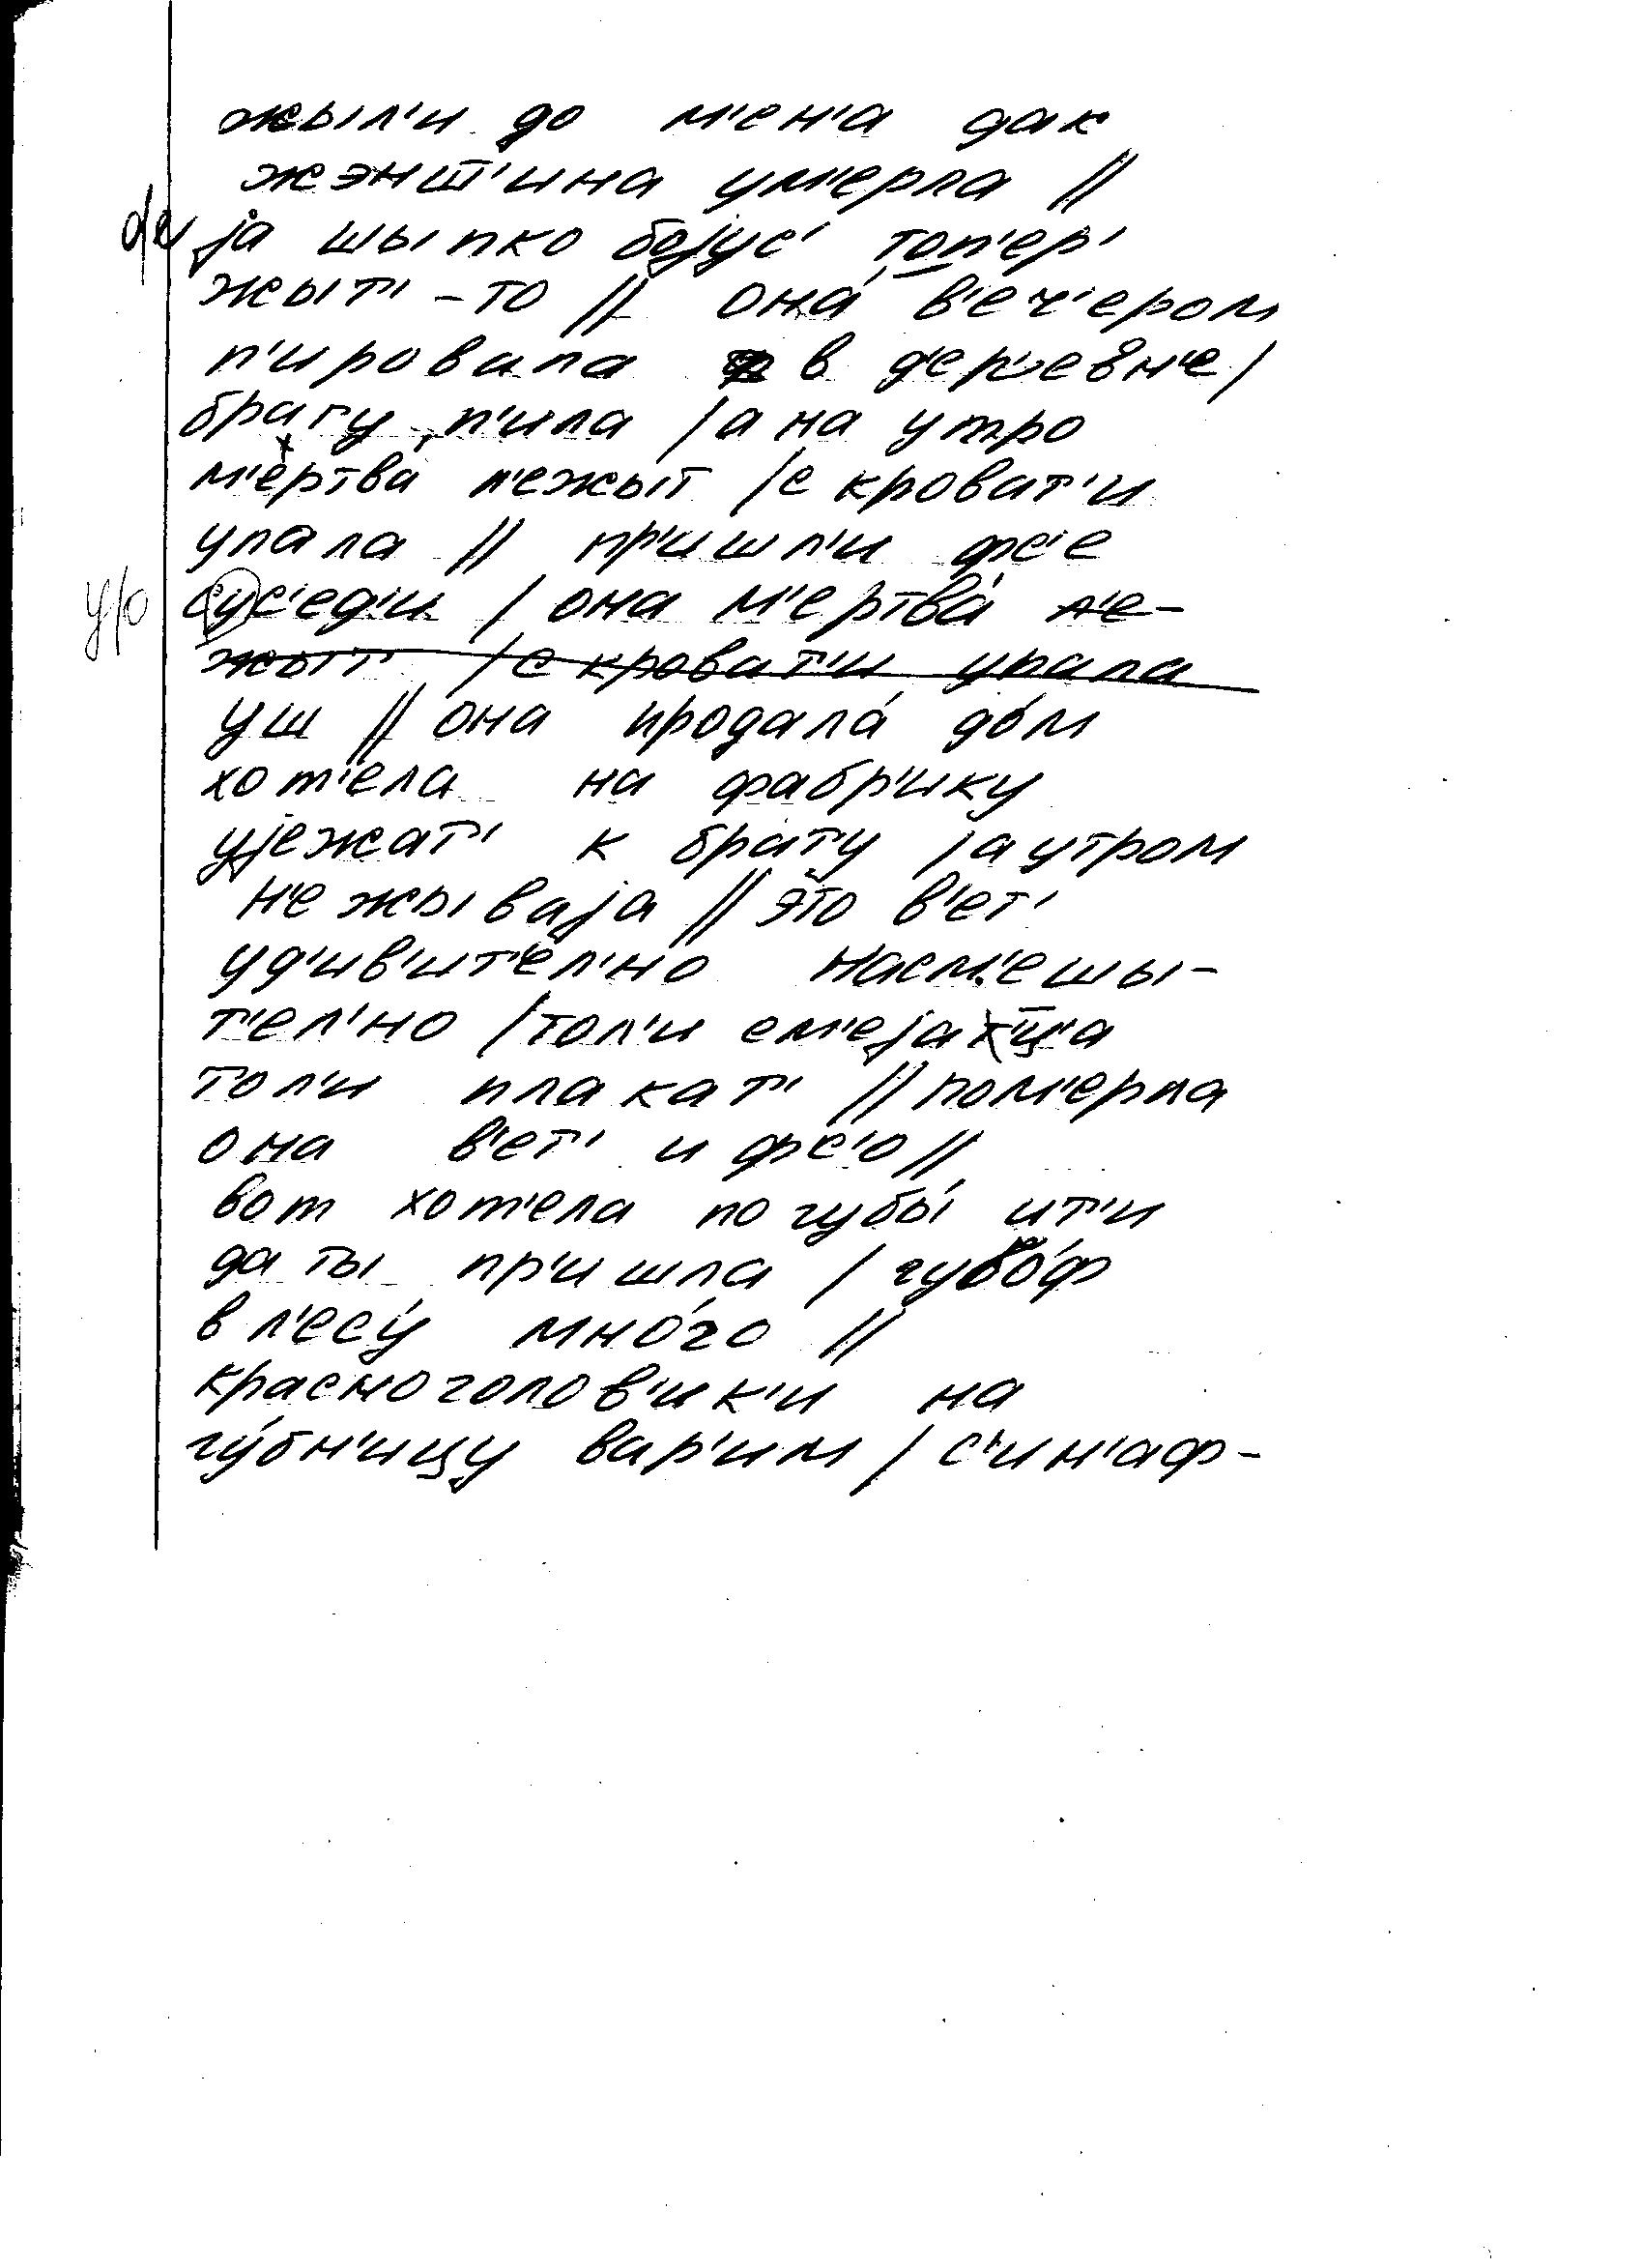 жыл'и до м'ен'а дак
жэнш'т'ина ум'ерла //
jа шыпко боjус' топ'ер'
жыт'-то // она́ в'еч'ером
п'ировала в д'ер'евн'е /
брагу п'ила / а на утро
м'ертва́ л'ежыт / с кроват'и
упала // пр'ишл'и фс'е
у/о сус'ед'и / она м'ертва́ л'е-
жыт / с кроват'и упала
уш // она продала́ до́м
хот'ела на фабр'ику
уjежат' к брату / а утром
н'е жываjа // это в'ет'
уд'ив'ит'ел'но насм'ешы-
т'ел'но / тол'и см'еjац'а
тол'и плакат' // пом'ерла
она в'ет' и фс'о //
вот хот'ела по губы́ ит'и
да ты пр'ишла / губо́ф
в л'есу́ мно́го //
красноголов'ик'и на
гу́бн'ицу вар'им / с'ин'аф-